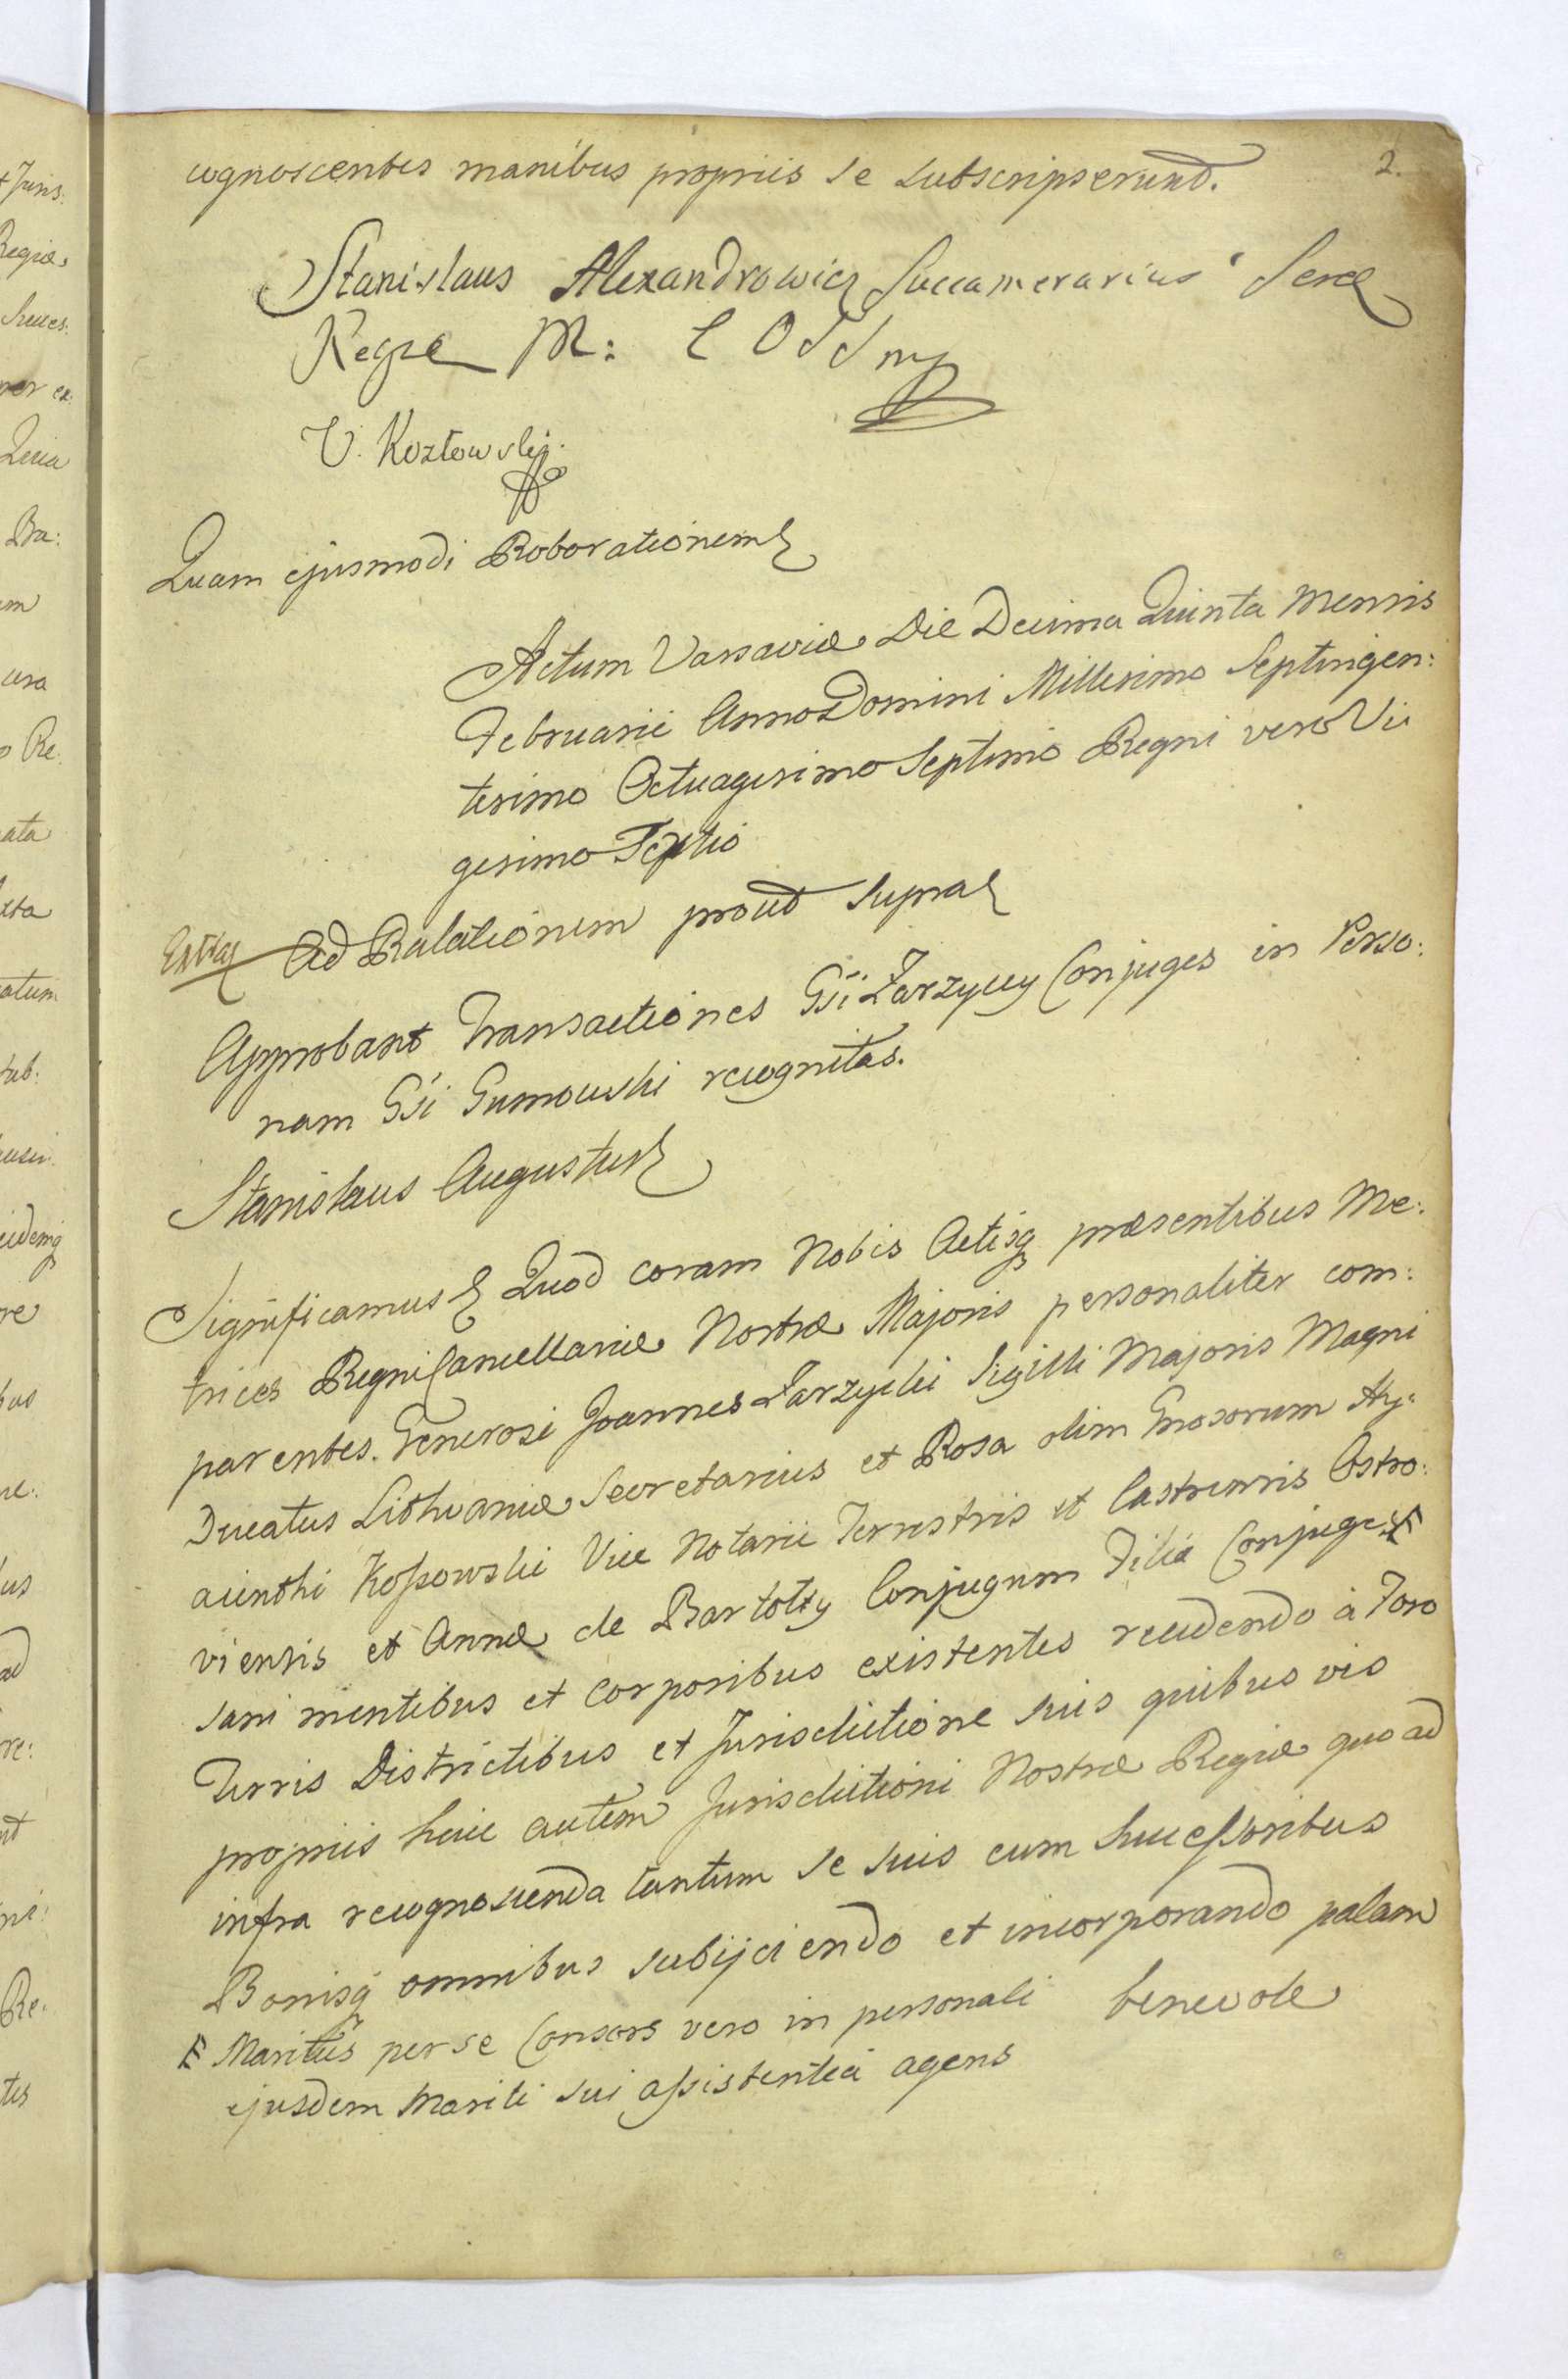 2.
cognoscentes manibus propriis se subscripserunt.
Stanislaus Alexandrowicz Succamerarius Scræ
Regæ M: C O S S mp
V. Kozłowskj.
Quam ejusmodi Roborationem
Actum Varsaviæ Die Decima Quinta Mensis
Februarii Anno Domini Millesimo Septingen:
tesimo Octuagesimo Septimo Regni vero Vi
gesimo Tertio
Ad Ralationem prout Supra
Approbant Transactiones Gsi Zarzyccy Conjuges in Perso:
nam Gsi Gumowski recognitas.
Stanislaus Augustus
Significamus Quod coram Nobis Actisq præsentibus Me:
trices Regni Cancellariæ Nostræ Majoris personaliter com:
parentes. Generosi Joannes Zarzycki Sigilli Majoris Magni
Ducatus Lithvaniæ Secretarius et Rosa olim Gnosorum Hy:
acinthi Kossowski Vice Notarii Terrestris et Castrensis Ostro:
viensis et Annæ de Bartolty Conjugum Filia Conjuges
sani mentibus et Corporibus existentes recedendo à Foro
Terris Districtibus et Jurisdictione suis quibus vis
propriis huic autem Jurisdictioni Nostræ Regiæ quo ad
infra recognoscenda tantum se suis cum Successoribus
Bonisq omnibus subijciendo et incorporando palam
benevole
Maritus per se Consors vero in personali
ejusdem Mariti sui assistentia agens